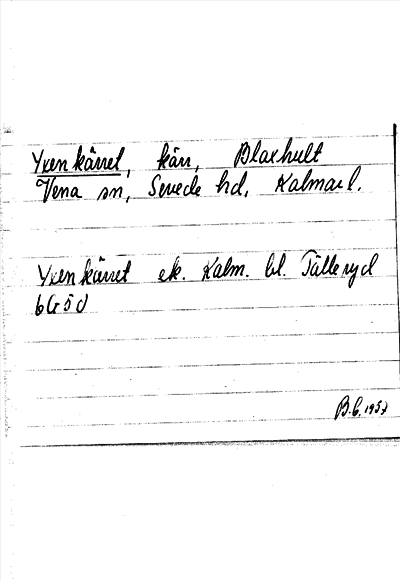 Yxenkärret, kärr, Blaxhult
Vena sn, Sevede hd, Kalmar l.
Yxenkärret ek. Kalm. bl. Tälleryd
6G5d
B.G. 1957